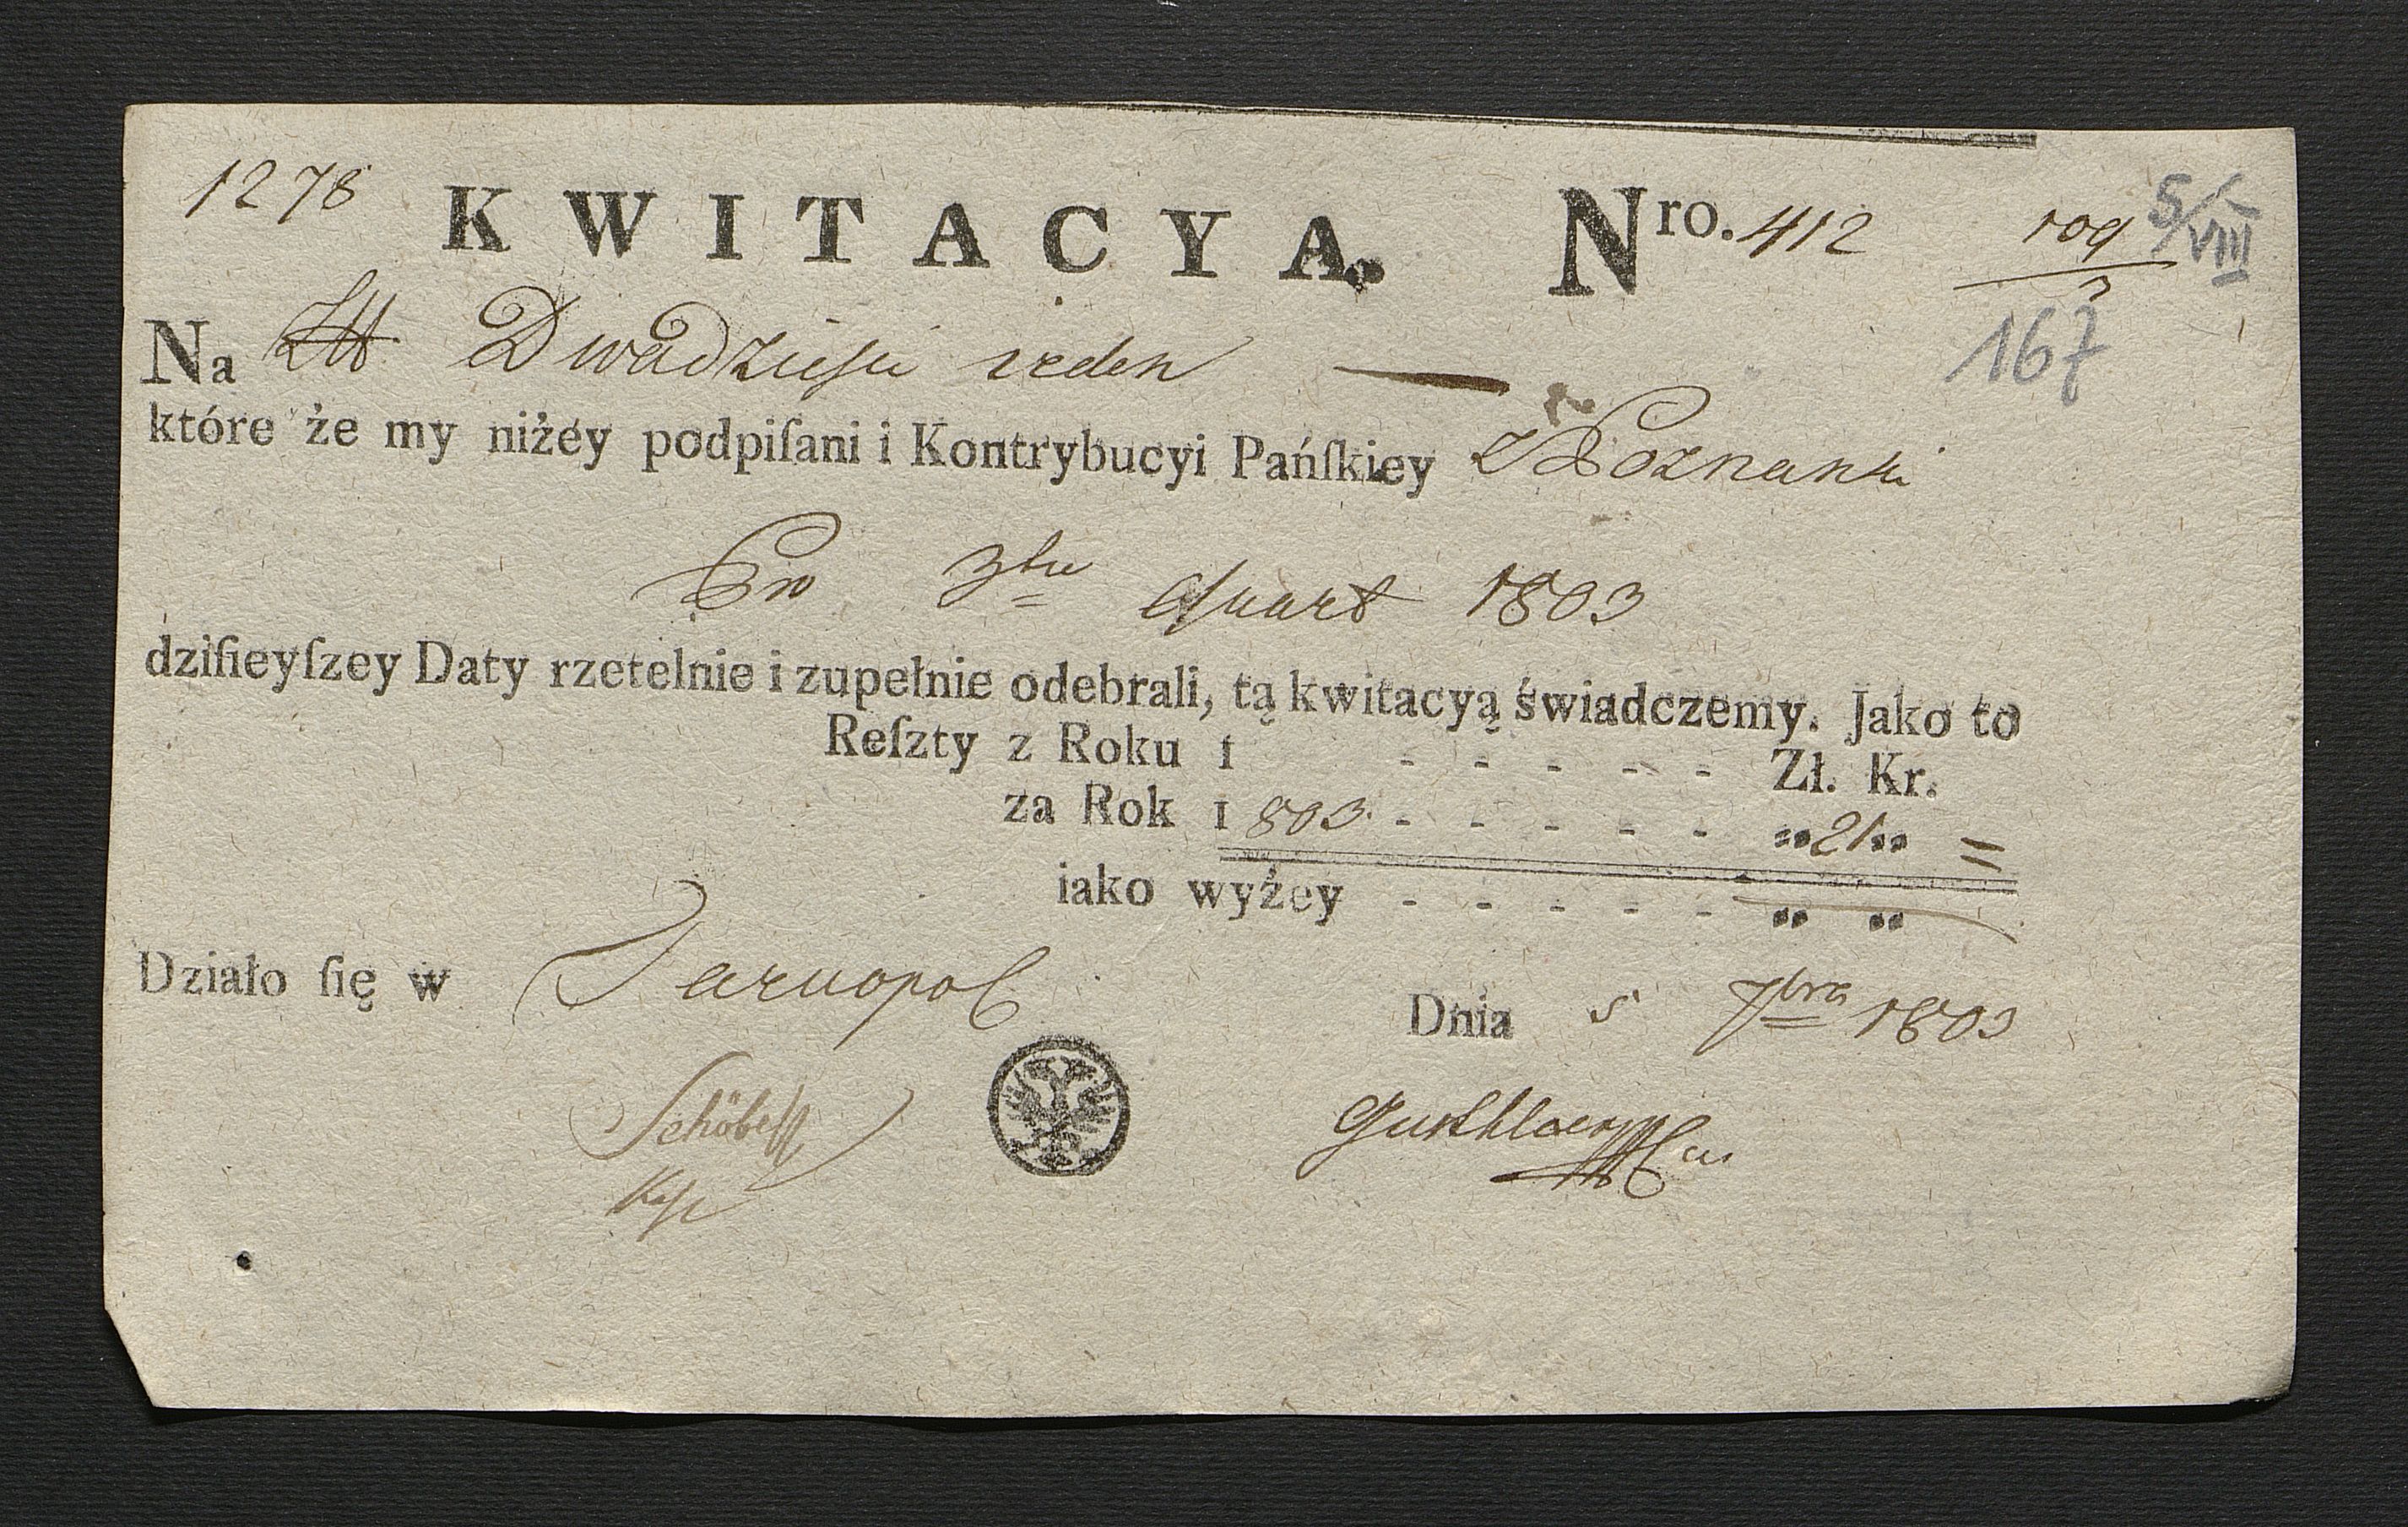 1278 KWITACYA. Nro. 412 109/3 5/VIII
167
Na Dwadzieści ieden
które że my niżéy podpiſani i Kontrybucyi Pańſkiey z Poznanki
Pro 3tio Quart 1803
dziſieyſzey Daty rzetelnie i zupełnie odebrali, tą kwitacyą świadczemy. Jako to
Reſzty z Roku 1 - - - - - Zł. Kr.
za Rok 1803. - - - - - „ 21 „ =
iako wyżey - - - - - „ „
Działo ſię w Tarnopol
Dnia 5 7bra 1803
Schöbel